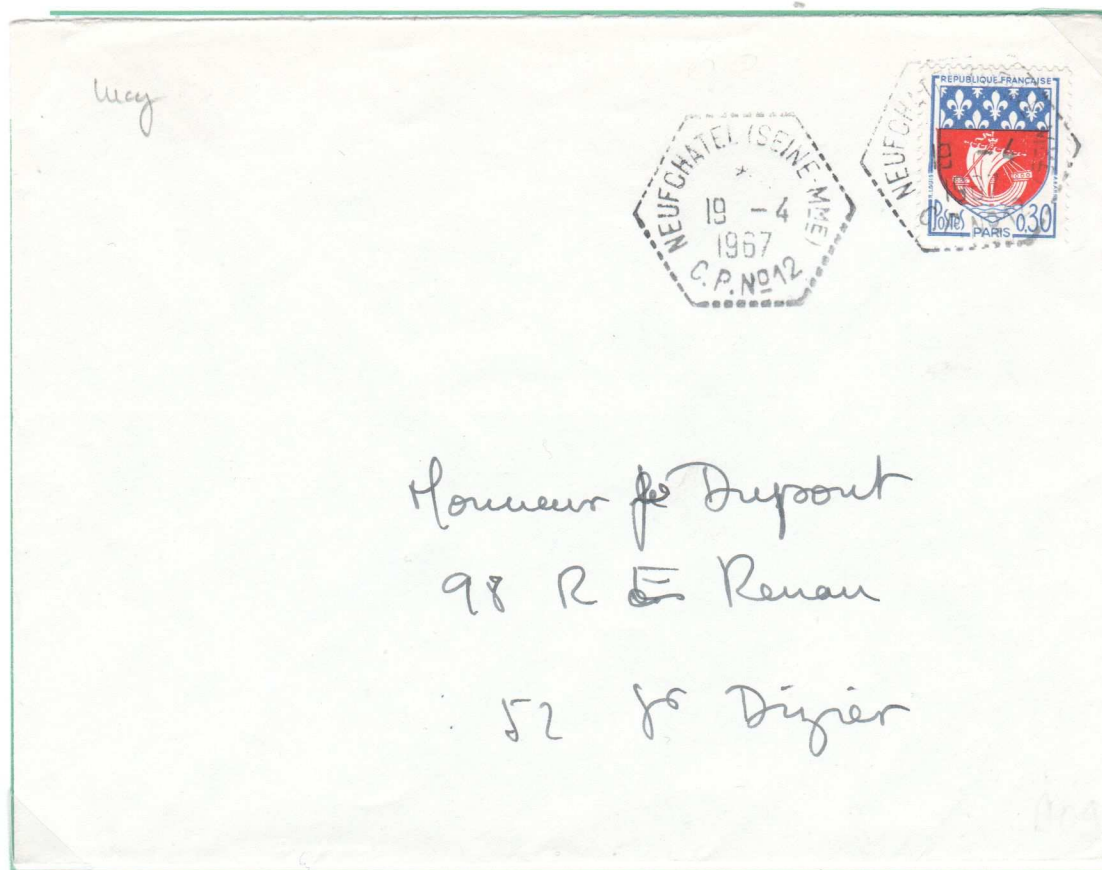 NEUFCHATEL (SEINE-MME)
19 -4
1967
C.P. Nº12
NEUFCHAT
19 -4
REPUBLIQUE FRANÇAISE
POSTES PARIS 0,30
Monsieur Dupont
98 R E Renan
52 St Dizier